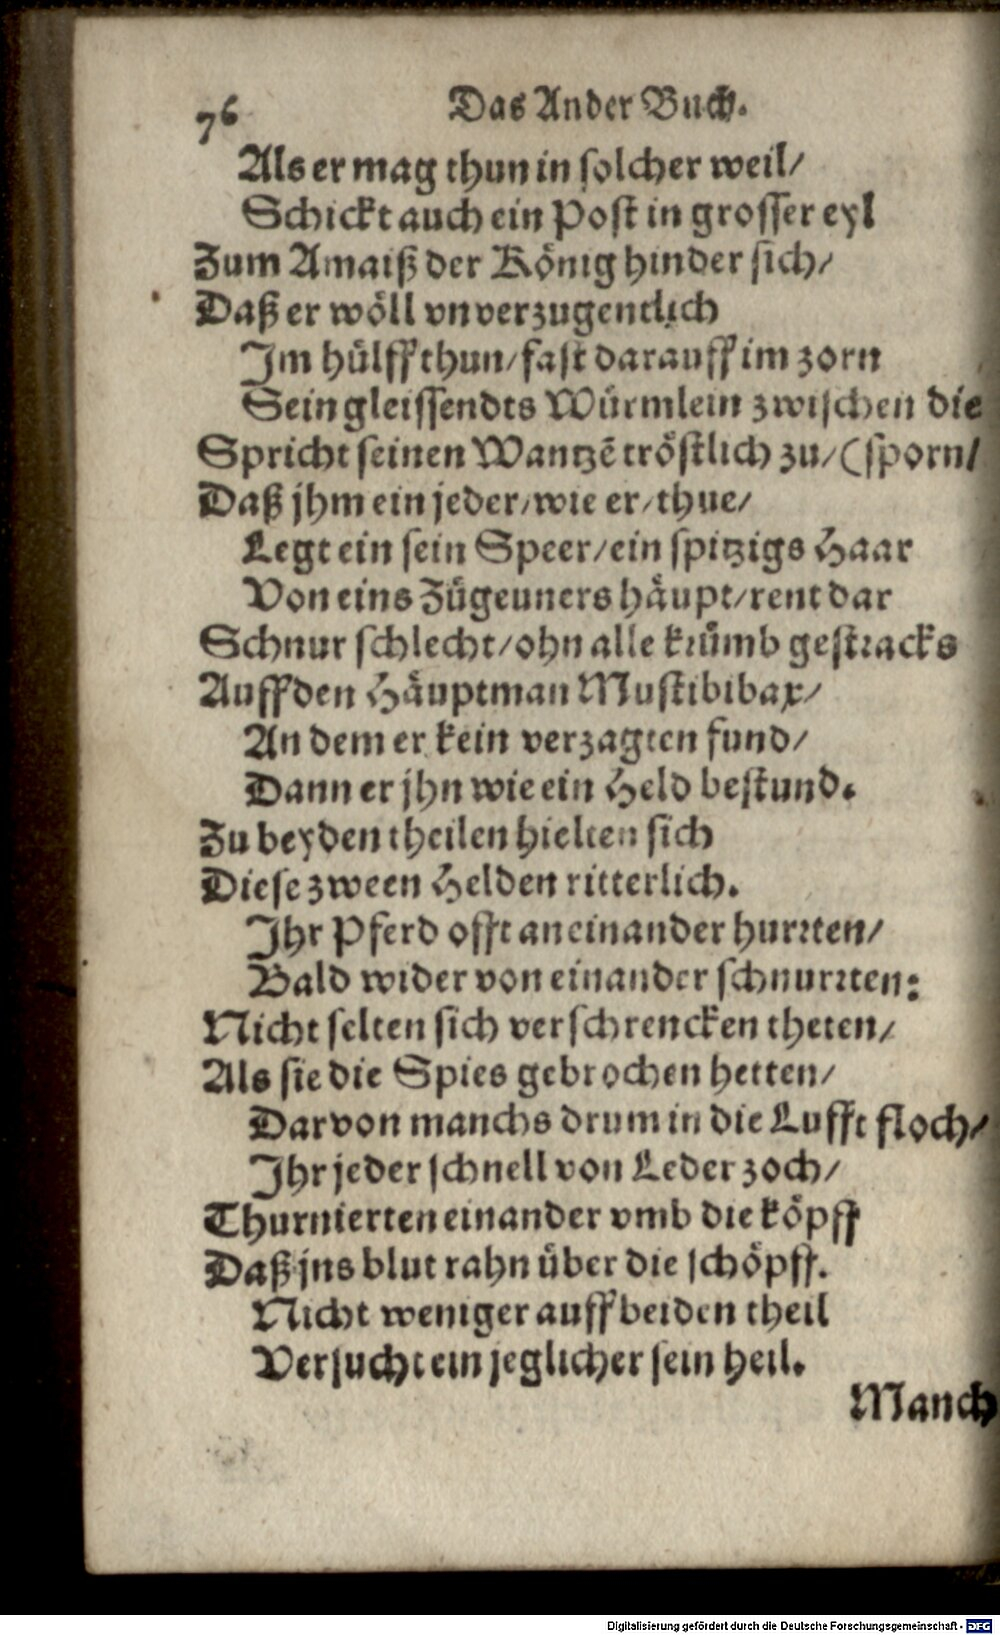 76 Das Ander Buch.
Als er mag thun in solcher weil/
Schickt auch ein Post in grosser eyl
Zum Amaiß der König hinder sich/
Daß er wöll vnverzugentlich
Im hülff thun/fast darauff im zorn
Sein gleissendts Würmlein zwischen die
Spricht seinen Wantzē tröstlich zu/(sporn/
Daß jhm ein jeder/wie er/thue/
Legt ein sein Speer/ein spitzigs Haar
Von eins Zügeuners häupt/rent dar
Schnur schlecht/ohn alle krümb gestracks
Auff den Häuptman Mustibibax/
An dem er kein verzagten fund/
Dann er jhn wie ein Held bestund.
Zu beyden theilen hielten sich
Diese zween Helden ritterlich.
Ihr Pferd offt aneinander hurrten/
Bald wider von einander schnurrten:
Nicht selten sich verschrencken theten/
Als sie die Spies gebrochen hetten/
Darvon manchs drum in die Lufft floch/
Ihr jeder schnell von Leder zoch/
Thurnierten einander vmb die köpff
Daß jns blut rahn über die schöpff.
Nicht weniger auff beiden theil
Versucht ein jeglicher sein heil.
Manch
Digitalisierung gefördert durch die Deutsche Forschungsgemeinschaft - DFG